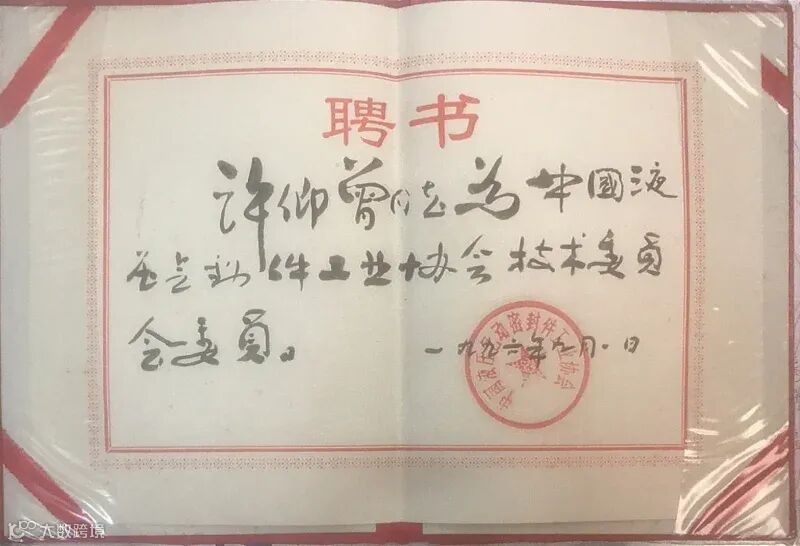 聘书
许仰曾同志为中國液
压气动件工业协会技术委员
会委员。
一九九二年九月一日
中国液压气动密封件工业协会
大数跨境